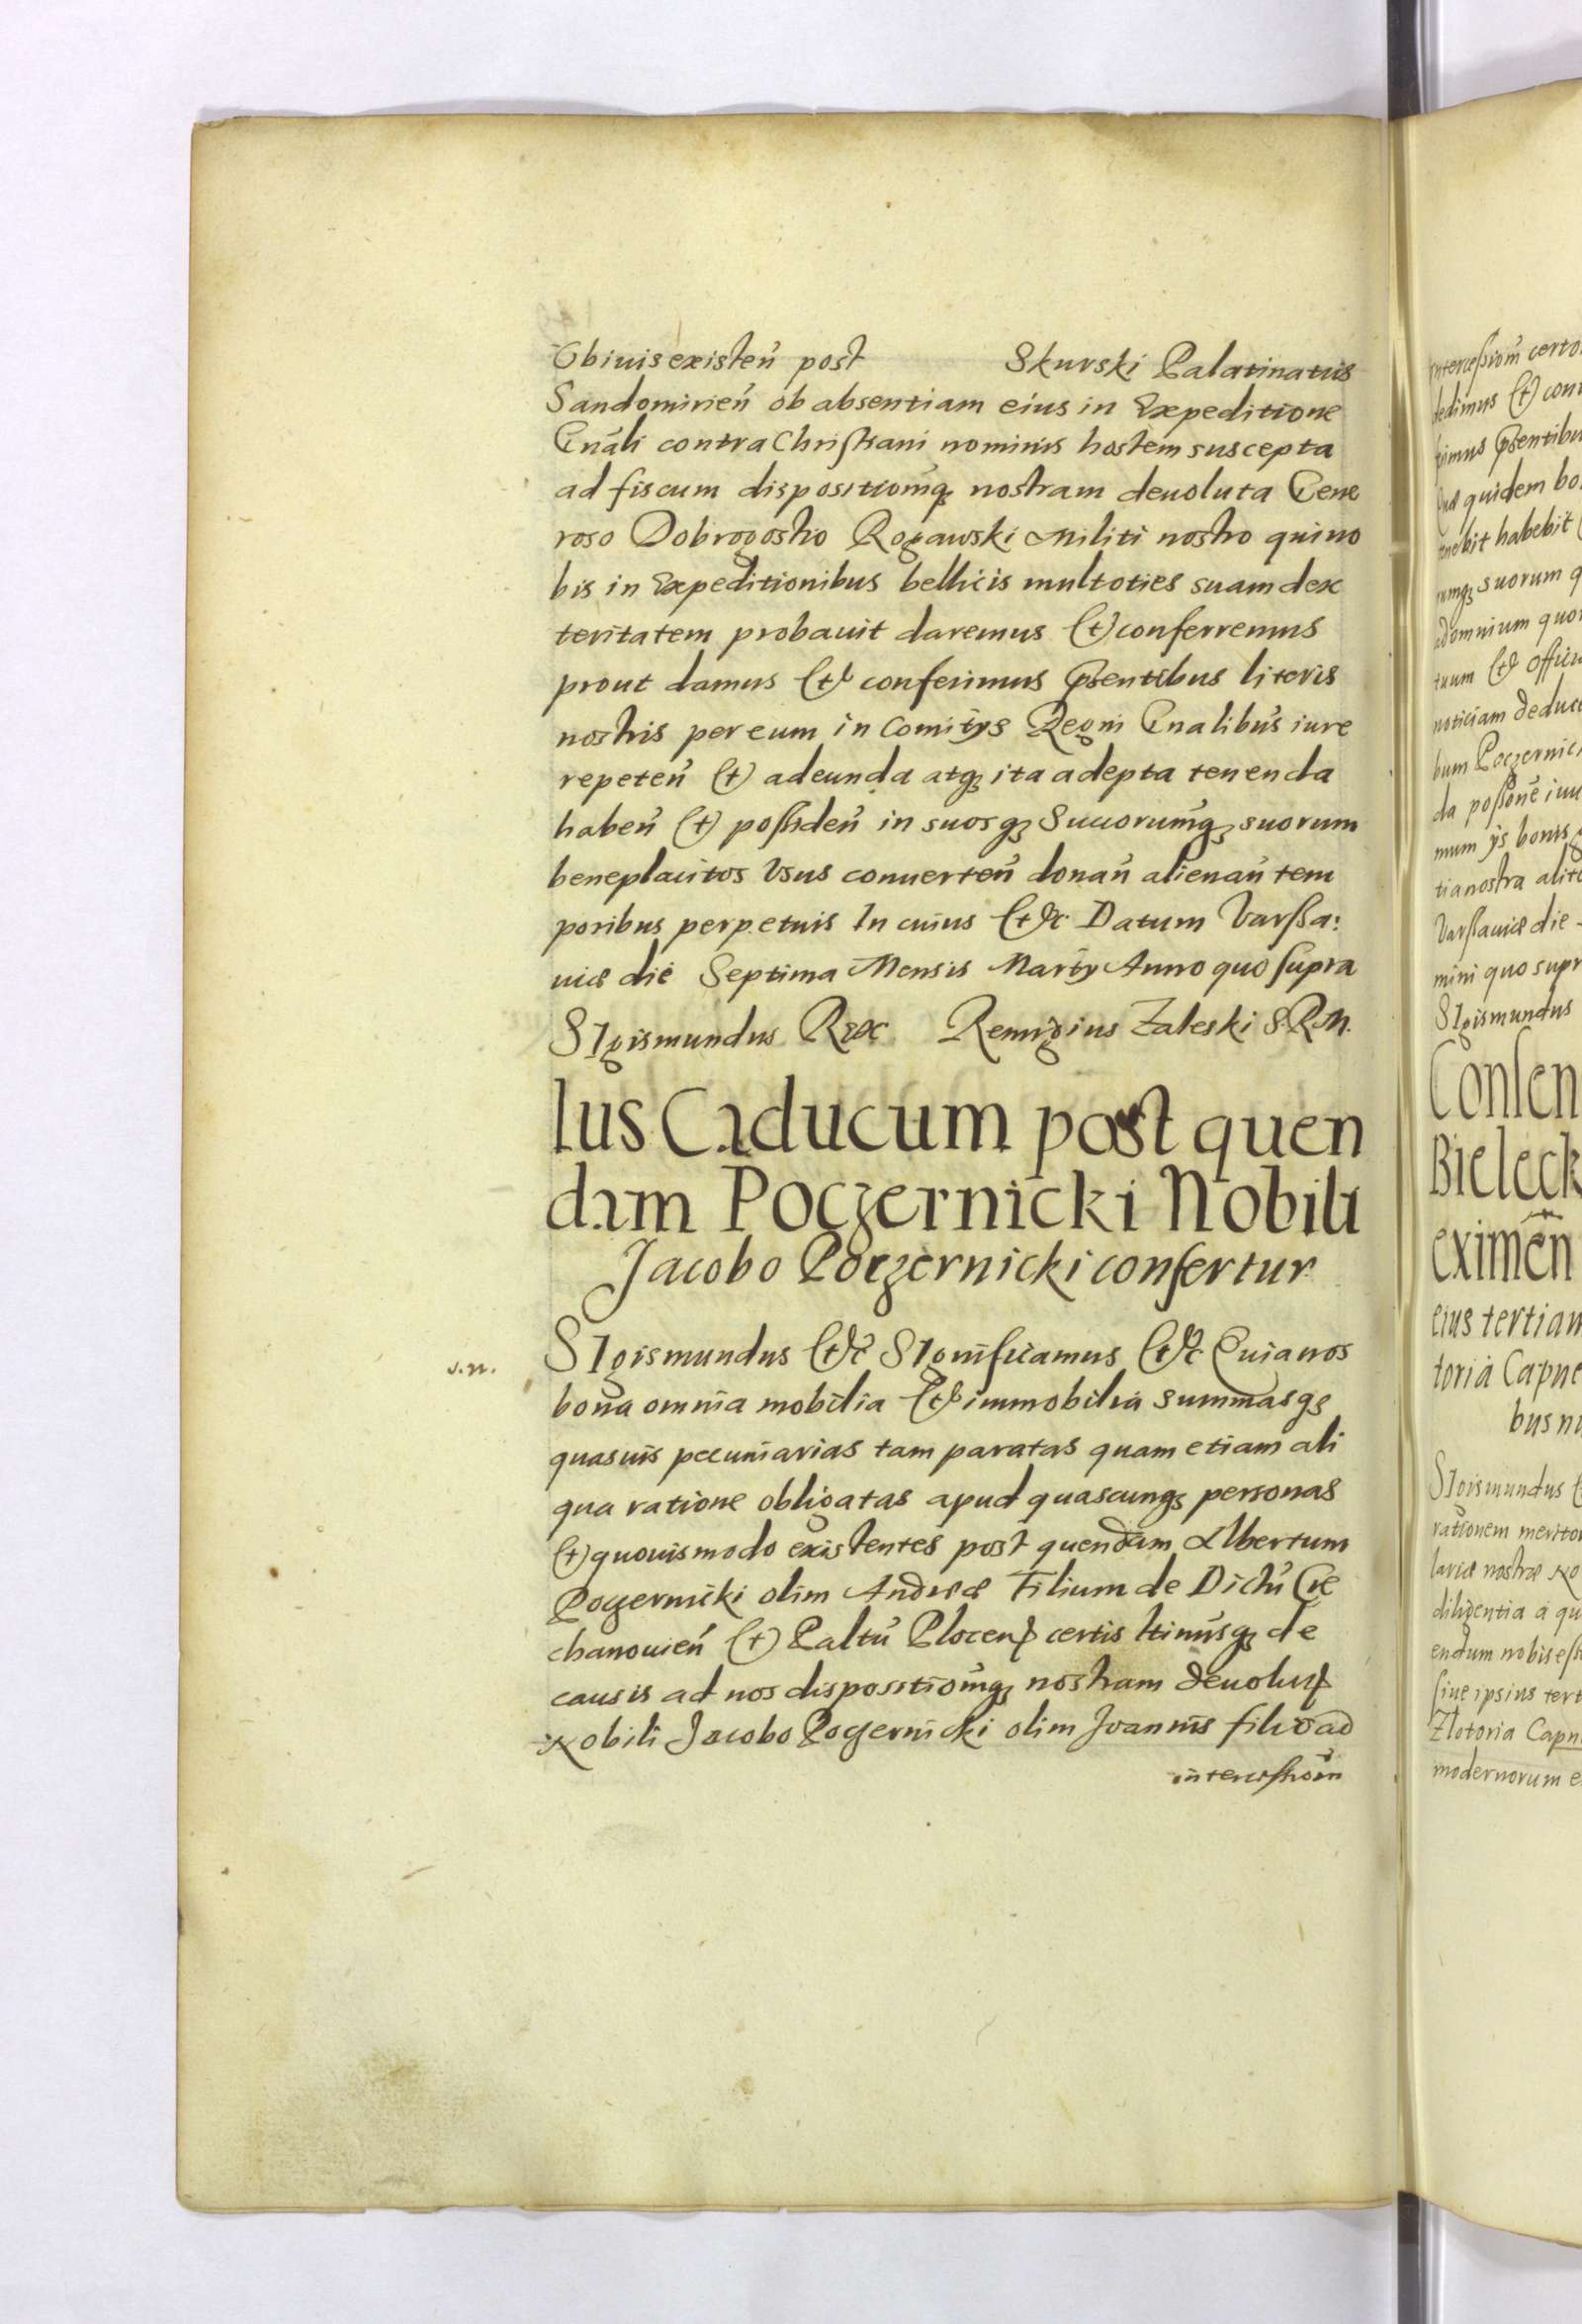 Obiuis existeñ post Skurski Palatinatus
Sandomirieñ ob absentiam eius in Expeditione
Gnãli contra Christiani nominis hostem suscepta
ad fiscum dispositiom̃q₃ nostram deuoluta Gene
roso Dobrogostio Rogawski Militi nostro qui no
bis in Expeditionibus bellicis multoties suam dex
teritatem probauit daremus et conferremus
prout damus et conferimus p̃sentibus literis
nostris per eum in Comitijs Regni Gnalibus iure
repeteñ et adeunda atq₃ ita adepta tenenda
habeñ et possideñ in suos q₃ Succorum̃q₃ suorum
beneplacitos Vsus conuerteñ donañ alienañ tem
poribus perpetuis In cuius etc. Datum Varssa:
uiæ die Septima Mensis Martij Anno quo supra
SIgismundus Rex Remigius Zaleski S.R.M.
Ius Caducum post quen
dam Poczernicki Nobili
Jacobo Poczernicki confertur
s.n.
SIgismundus etc SIgnificamus etc. Quia nos
bona omnia mobilia et immobilia summasq₃
quasuis pecuniarias tam paratas quam etiam ali
qua ratione obligatas apud quascunq₃ personas
et quouismodo existentes post quendam Albertum
Poczernicki olim Andreæ Filium de Dictũ Cie
chanouieñ et Paltũ Plocen certis ltimisq₃ de
causis ad nos dispositiom̃q₃ nostram deuolut
Nobili Jacobo Poczernicki olim Joannis filio ad
intercessiom̃
intercessiom̃ certo
dedimus et con
p̃sentibu
quidem bo
habebit
suorum q
omnium quor
et offici
noticiam deduc
bum Poczernic
da possone iuu
mum ijs bonis
tia nostra alit
Varssauiæ die
mini quo supr
SIgismundus
Consen
Bieleck
eximeñ
eius tertiam
toria Capne
bus nu
SIgismundus
rationem merito
lariæ nostræ No
diligentia a qu
endum nobis ess
siue ipsius tert
Zlotoria Capn
modernorum e